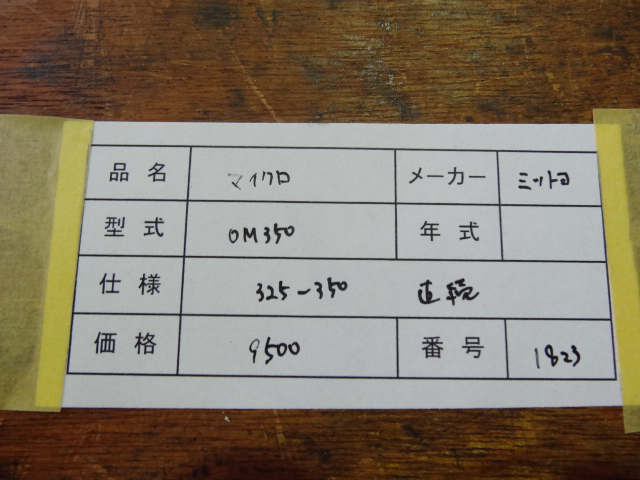 品名 マイクロ メーカー ミツトヨ
型式 OM350 年式
仕様 325-350 直読
価格 9500 番号 1823